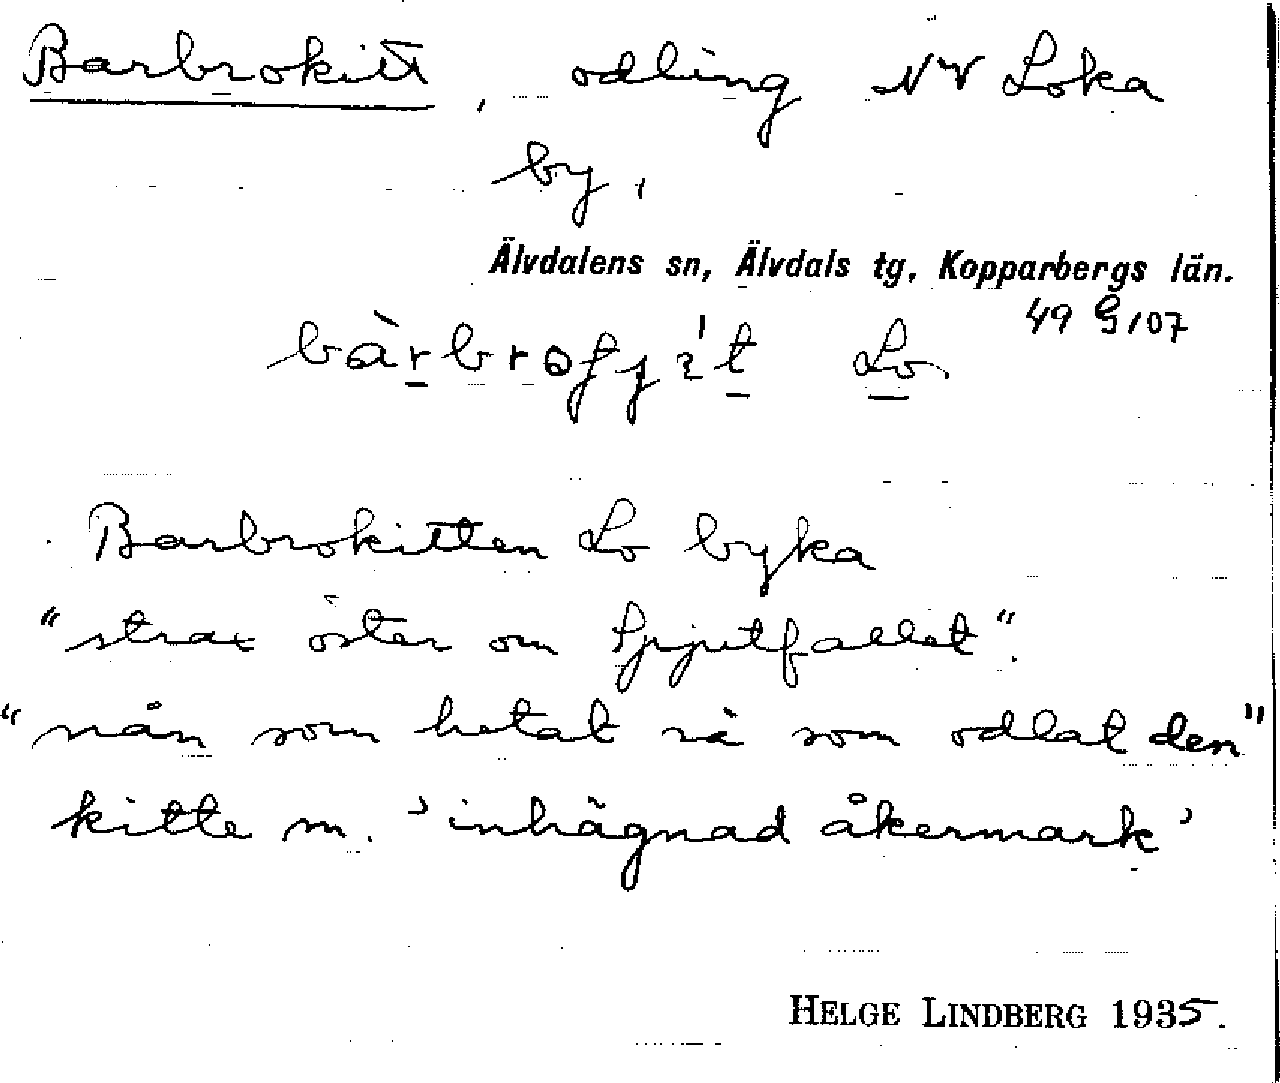 Barbrokitt, odling NV Loka
by,
Älvdalens sn, Älvdals tg. Kopparbergs län.
49 G 107
Lo
Barbrokitten Lo byka
"strax öster om Spjutfallet".
"nån som hetat så som odlat den"
kitte m. 'inhägnad åkermark'
HELGE LINDBERG 1935.